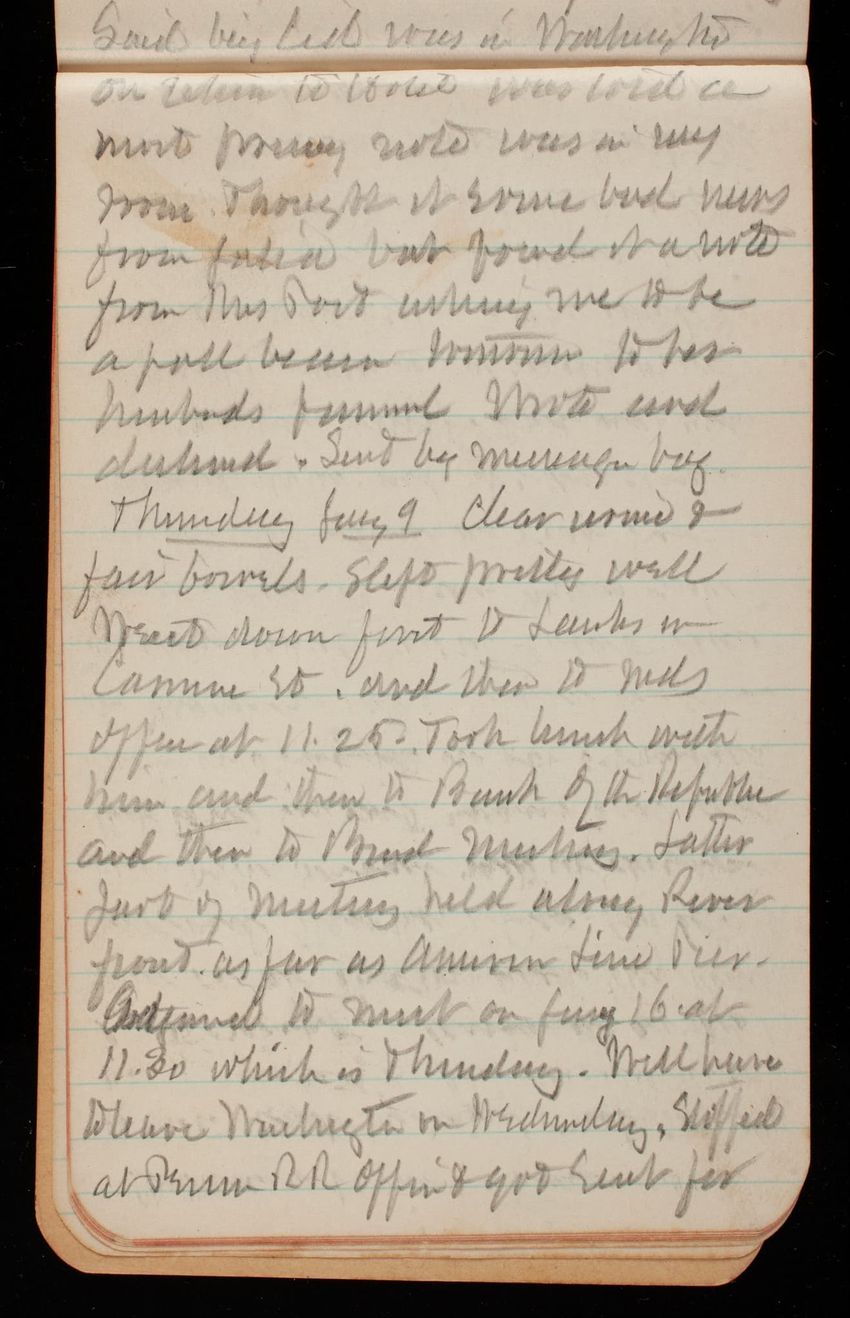 Said big Ced was in Washington
on return to Hotel was told a
most pressing note was in my
room. Thought it some bad news
from but found it a note
from Mrs Post asking me to be
a pall bearer tomorrow to her
husbands funeral Wrote and
declined. Sent by messenger boy.
Thursday Jany 9 Clear &
fair bowels. Slept pretty well
Went down first to Sauks in
Canal St. and then to Neds
office at 11.25. Took lunch with
him and then to Bank of the Republic
and then to Board Meeting. Latter
part of Meeting held along River
front. as far as American Line Pier.
Adjourned to meet on Jany 16 at
11.30 which is Thursday. Will have
to leave Washington on Wednesday. Stopped
at Penn RR Office & got Seat for